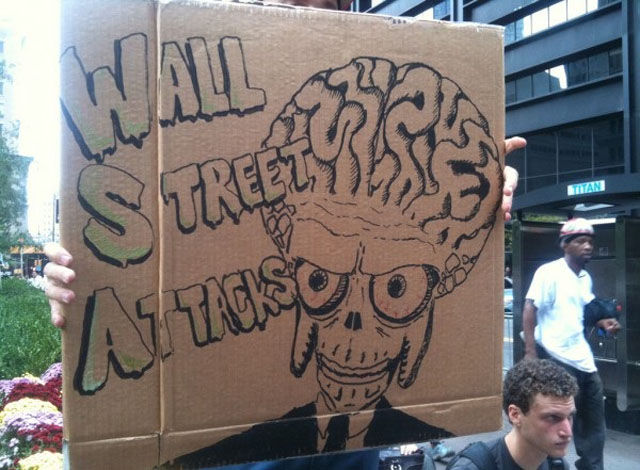 WALL
STREET
ATTACKS
TITAN